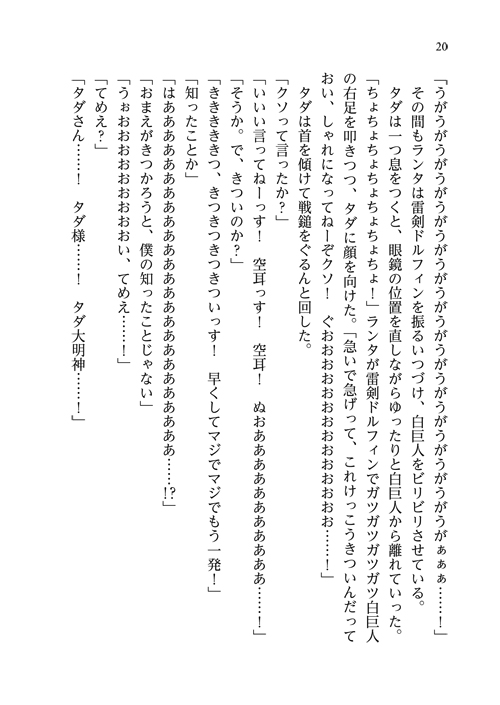 20
「うがうがうがうがうがうがうがうがうがうがうがうがうがうがうがぁぁぁ……！」
その間もランタは雷剣ドルフィンを振るいつづけ、白巨人をビリビリさせている。
タダは一つ息をつくと、眼鏡の位置を直しながらゆったりと白巨人から離れていった。
「ちょちょちょちょちょちょちょ！」ランタが雷剣ドルフィンでガツガツガツガツ白巨人
の右足を叩きつつ、タダに顔を向けた。「急いで急げって、これけっこうきついんだって
おい、しゃれになってねーぞクソ！　ぐおおおおおおおおおおおおおお……！」
タダは首を傾けて戦鎚をぐるんと回した。
「クソって言ったか？」
「いいい言ってねーっす！　空耳っす！　空耳！　ぬおああああああああああ……！」
「そうか。で、きついのか？」
「きききききつ、きつきつきつきついっす！　早くしてマジでマジでもう一発！」
「知ったことか」
「はああああああああああああああああああああああああ……!?」
「おまえがきつかろうと、僕の知ったことじゃない」
「うぉおおおおおおおおおおおい、てめえ……！」
「てめえ？」
「タダさん……！　タダ様……！　タダ大明神……！」